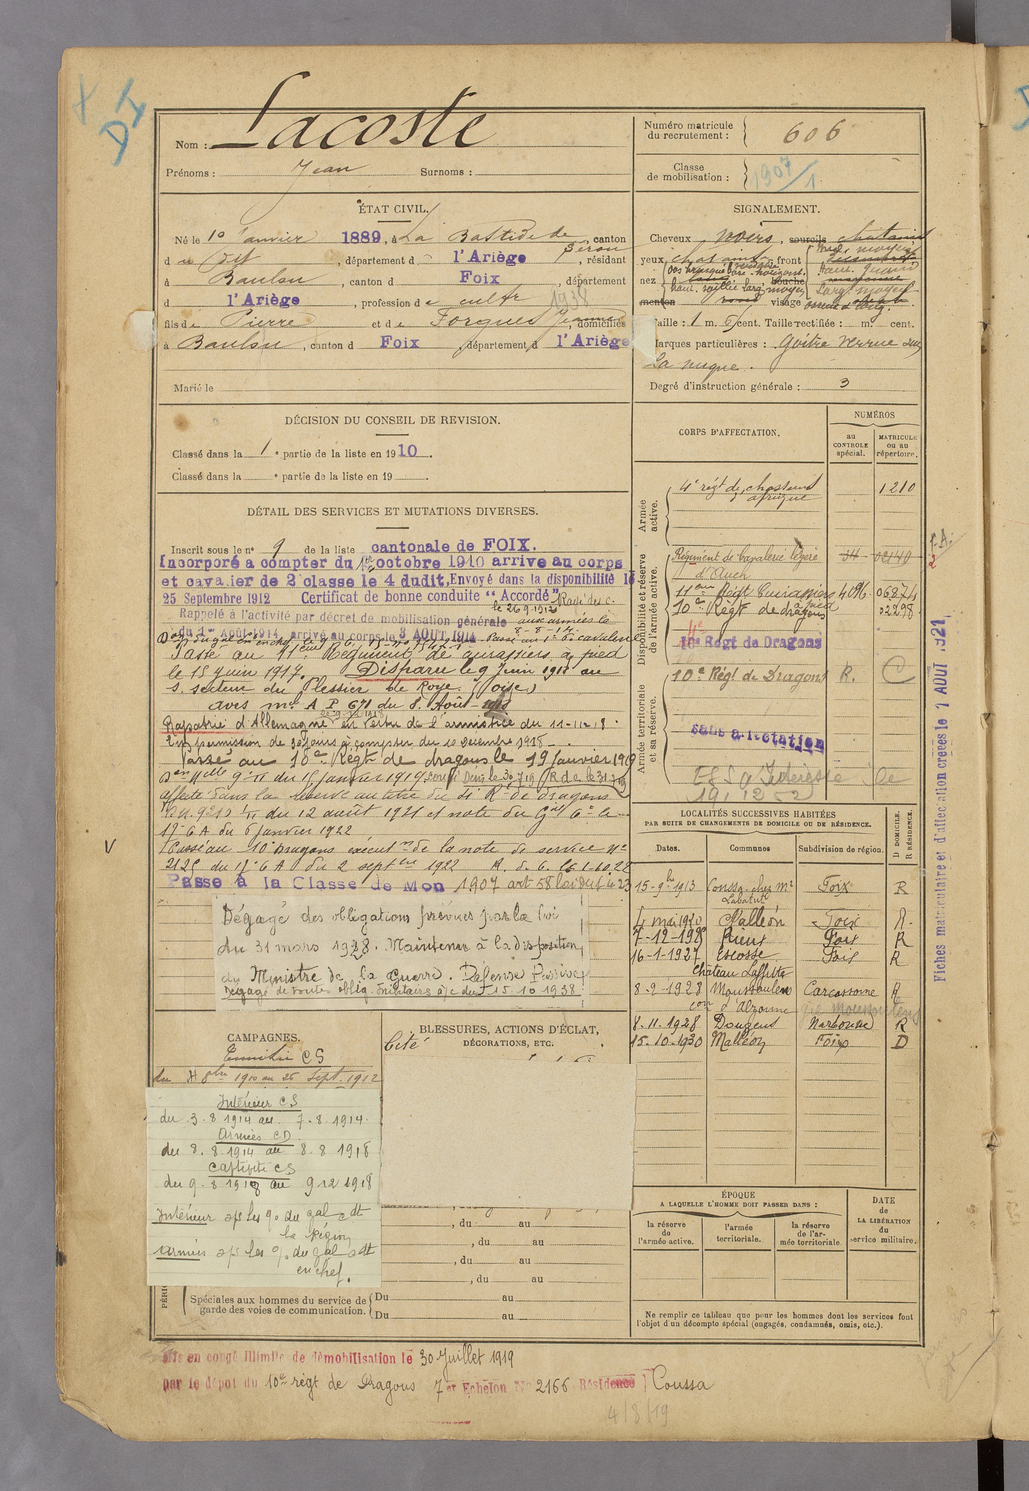 DI
Nom : Lacoste
Prénoms : Jean Surnoms :
Numéro matricule du recrutement : 606
Classe de mobilisation : 1907/1
ÉTAT CIVIL.
Né le 10 Janvier 1889, à La Bastide de Sérou, canton
d u dit, département d e l'Ariège, résidant
à Baulou, canton d Foix, département
d l'Ariège, profession d e cultr
1938
fils d e Pierre et d e Forgues Jeanne, domiciliés
à Baulou, canton d Foix, département d l'Ariège
Marié le
SIGNALEMENT.
Cheveux noirs, sourcils chatains
yeux chatains, front
nez
menton rond visage
Taille : 1 m. cent. Taille rectifiée : m. cent.
Marques particulières : Goitre verrue sur
la nuque.
Degré d'instruction générale : 3
DÉCISION DU CONSEIL DE REVISION.
Classé dans la 1e partie de la liste en 1910.
Classé dans la e partie de la liste en 19
CORPS D'AFFECTATION.
NUMÉROS
au CONTROLE spécial.
MATRICULE ou au répertoire.
Armée active.
4e régt de chasseurs d'afrique 1210
Disponibilité et réserve de l'armée active.
Régiment de cavalerie légère d'Auch
11eme Régt Cuirassiers à pied
10e Régt de dragons 02298
Régt de Dragons
Armée territoriale et sa réserve.
10e Régt de Dragons R. C
sans affectation
19.12.52
DÉTAIL DES SERVICES ET MUTATIONS DIVERSES.
Inscrit sous le n° 9 de la liste cantonale de FOIX.
Incorporé a compter du 1er octobre 1910 arrive au corps
et cavalier de 2e classe le 4 dudit. Envoyé dans la disponibilité le
25 Septembre 1912 Certificat de bonne conduite "Accordé" Rayé des c.
le 26.9.1912
Rappelé à l'activité par décret de mobilisation générale aux armées le
du 1er Août 1914, arrivé au corps le 3 AOUT 1914
Passé au 11eme Régiment de cuirassiers à pied
le 15 juin 1917. Disparu le 9 Juin 1918 au
s. secteur du Plessier de Roye (Oise)
avis mel A P 671 du 8. Août 1918
Rapatrié d'Allemagne en vertu de l'armistice du 11-11-18.
En permission de 30 jours à compter du 10 Décembre 1918.
Passé au 10e Régt de dragons le 19 Janvier 1919
affecté dans la réserve au titre du 4e Rt de dragons
du 12 août 1921 et note du Gal Ct le
17e C A du 6 janvier 1922
Passé au 10e Dragons exécut on de la note de service N°
2125 du 17e C A du 2 septbre 1922
Passé à la Classe de Mon 1907 art 58 loi du 1.4.23
Dégagé des obligations prévues par la loi
du 31 mars 1928. Maintenu à la disposition
du Ministre de la Guerre. Défense Passive
Dégagé de toutes obligon militaires à/c du 15.10.1938
LOCALITÉS SUCCESSIVES HABITÉES
PAR SUITE DE CHANGEMENTS DE DOMICILE OU DE RÉSIDENCE.
Dates. Communes Subdivision de région. D DOMICILE. R RÉSIDENCE.
15-9-1913 Coussa chez Mr Labatut Foix R
4 mai 1920 Malléon Foix R.
7-12-192 Rieux Foix R
16-1-1927 Escosse Foix R
Château Laffitte
8-2-1928 Moussoulens Carcassonne R
con d'Alzonne
8.11.1928 Dougens Narbonne R
15-10-1930 Malléon Foix D
CAMPAGNES.
CS
du 4 8bre 1910 au 25 Sept. 1912
Intérieur CS
du 3.8.1914 au 7.8.1914.
Armées CD
du 8.8.1914 au 8.8.1918
Captivité CS
du 9.8.1918 au 9 12 1918
Intérieur aps les °/o du gal cdt
la Région
Armées aps les °/o du gal cdt
en chef.
BLESSURES, ACTIONS D'ÉCLAT,
DÉCORATIONS, ETC.
Cité
, du au
, du au
, du au
, du au
Spéciales aux hommes du service de garde des voies de communication.
Du au
Du au
ÉPOQUE
A LAQUELLE L'HOMME DOIT PASSER DANS :
la réserve de l'armée active.
l'armée territoriale.
la réserve de l'armée territoriale.
DATE de LA LIBÉRATION du service militaire.
Ne remplir ce tableau que pour les hommes dont les services font
l'objet d'un décompte spécial (engagés, condamnés, omis, etc.).
Fiches matriculaire et d'affectation créées le 7 AOUT 1921
Mis en congé illimité de démobilisation le 30 Juillet 1919
par le dépôt du 10e régt de Dragons 7er Echelon N° 2166 Résidence Coussa
4/8/19